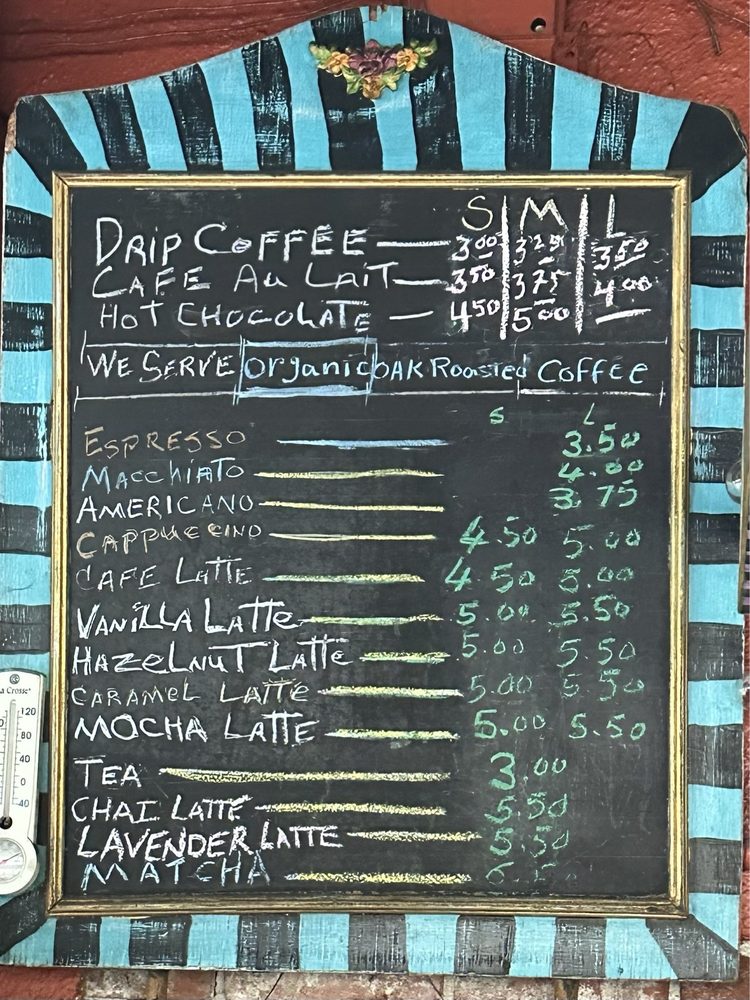 S M L
DRIP COFFEE 3.00 3.25 3.50
CAFE Au LAIT 3.50 3.75 4.00
HOT CHOCOLATE 4.50 5.00
WE SERVE Organic OAK Roasted Coffee
S L
ESPRESSO 3.50
MACCHIATO 4.00
AMERICANO 3.75
CAPPUCCINO 4.50 5.00
CAFE LATTE 4.50 5.00
VANILLA LATTE 5.00 5.50
HAZELNUT LATTE 5.00 5.50
CARAMEL LATTE 5.00 5.50
MOCHA LATTE 5.00 5.50
TEA 3.00
CHAI LATTE 5.50
LAVENDER LATTE 5.50
MATCHA
120
80
40
0
40